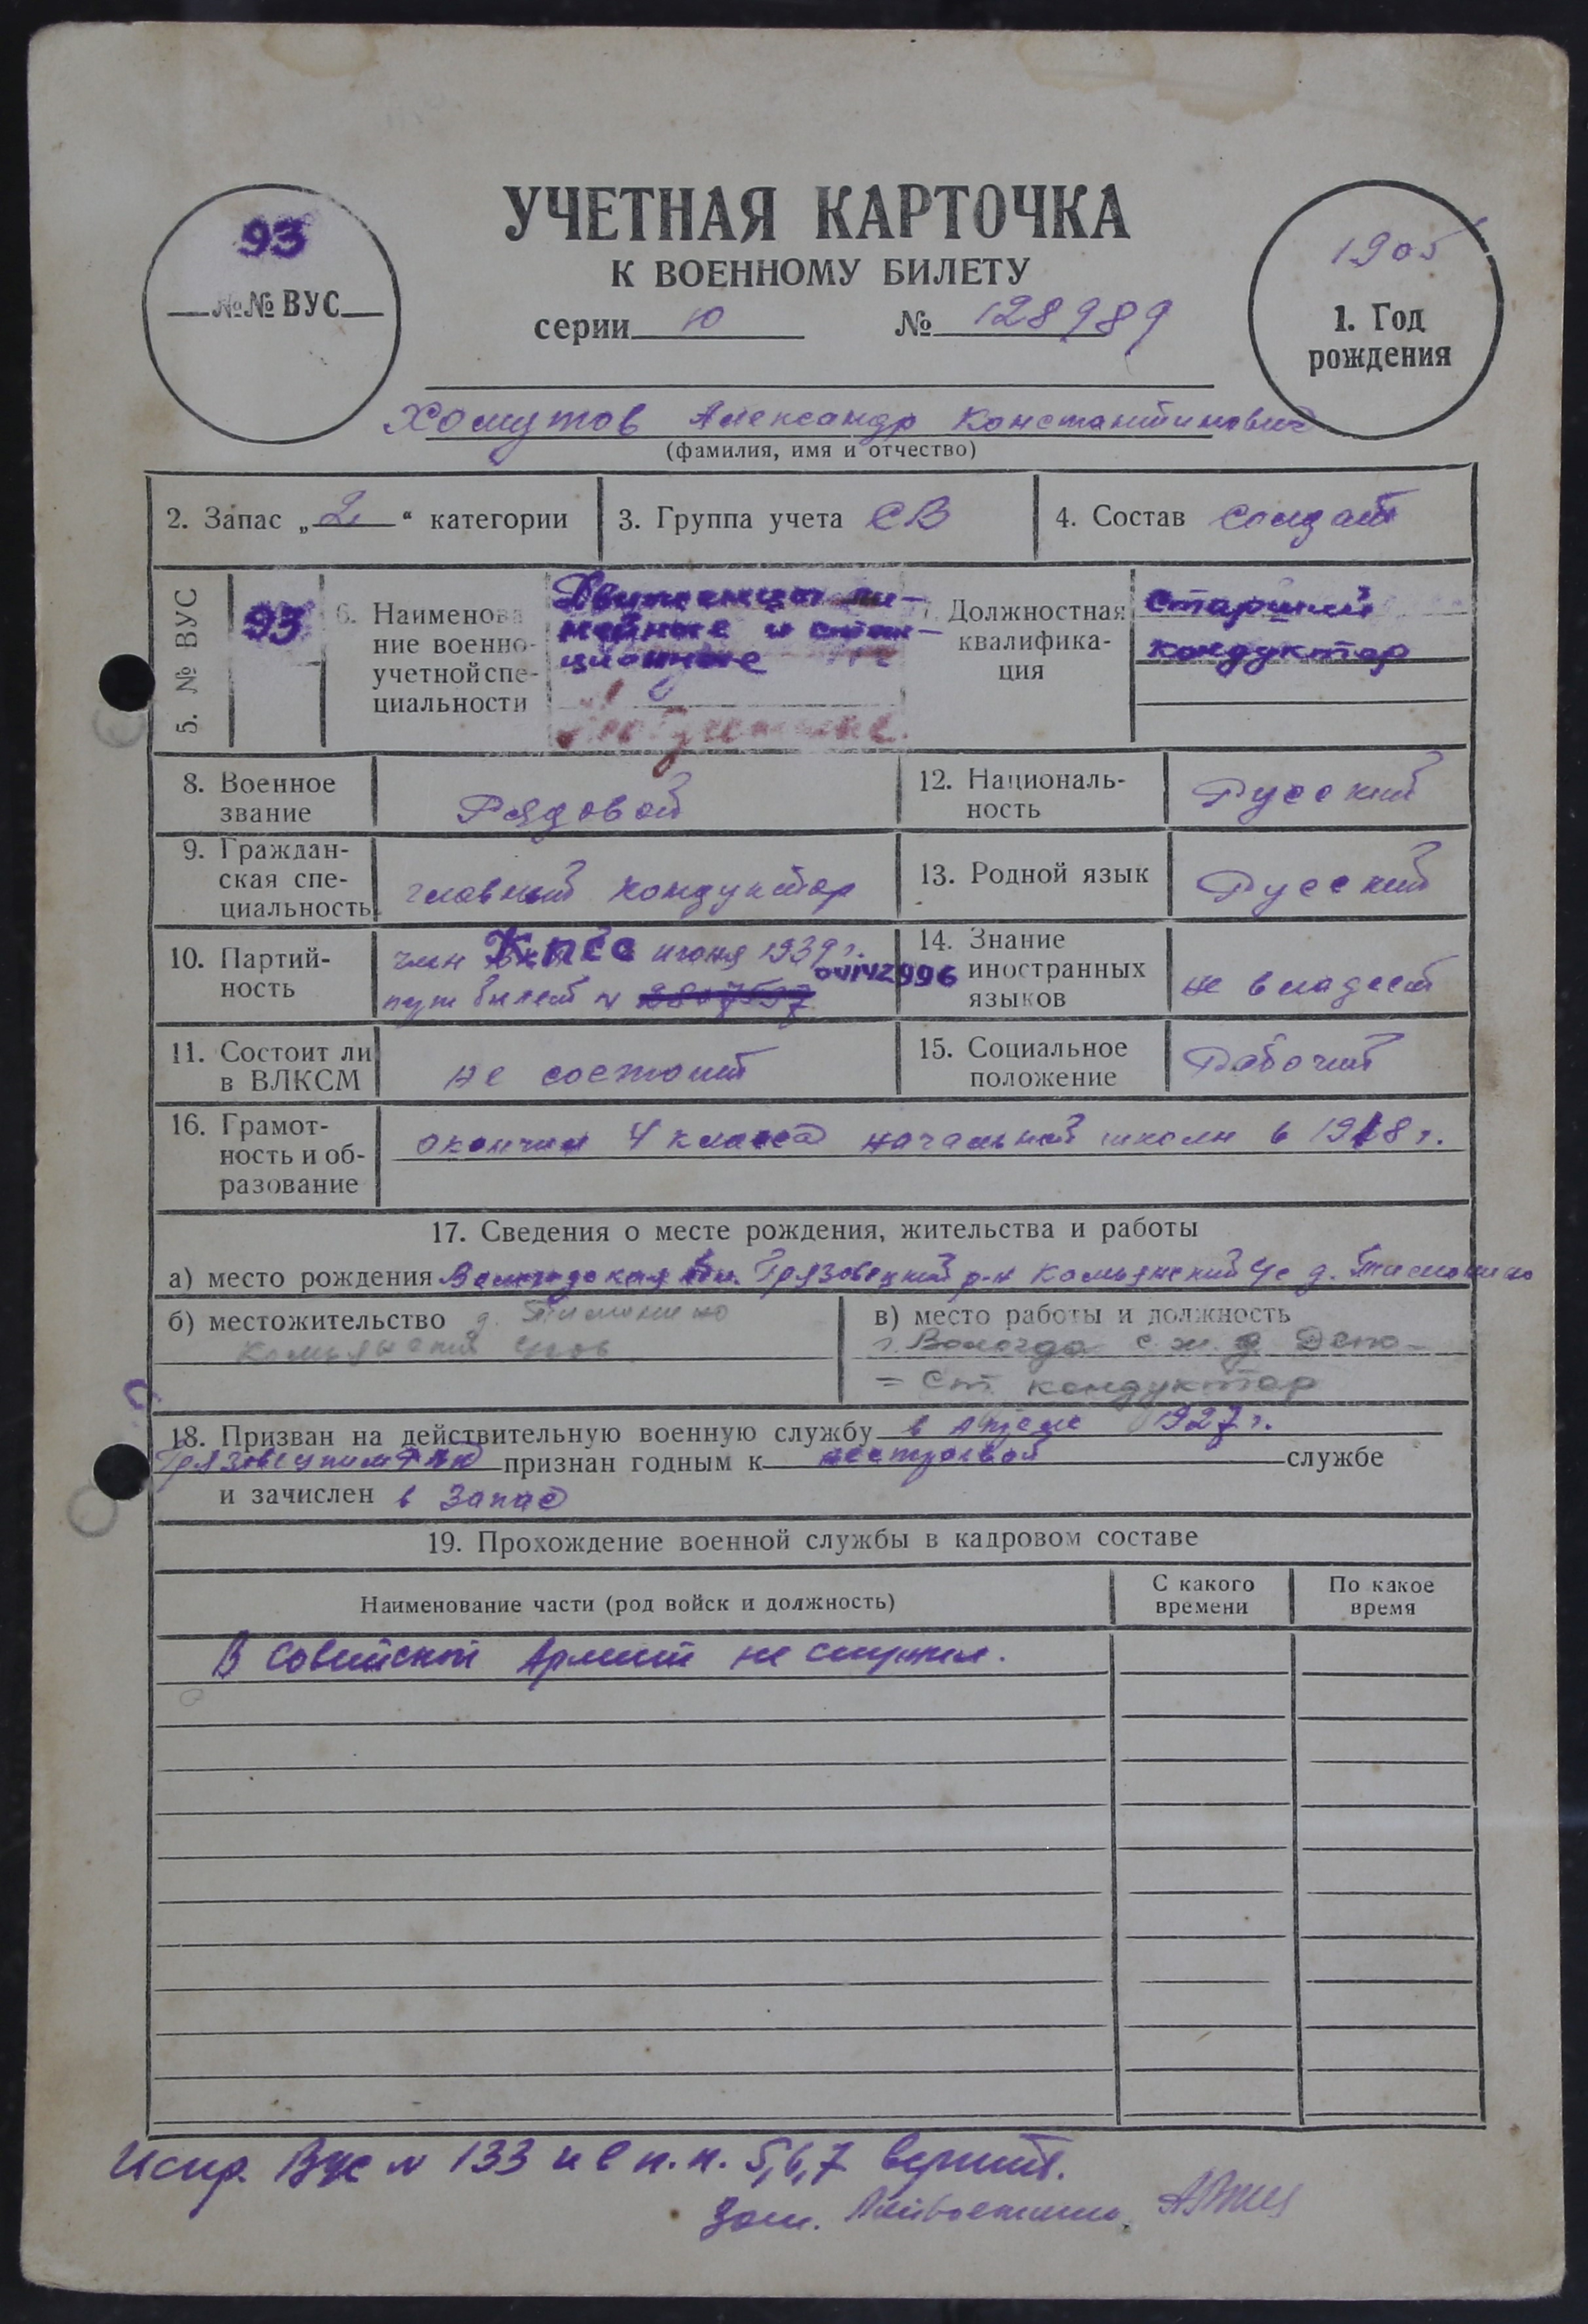 УЧЕТНАЯ КАРТОЧКА
К ВОЕННОМУ БИЛЕТУ
серии 10 № 128989
93
№№ ВУС
1905
1. Год
рождения
Хомутов Александр Константинович
(фамилия, имя и отчество)
2. Запас „2“ категории
3. Группа учета СВ
4. Состав солдат
5. № ВУС
93
6. Наименова
ние военно-
учетной спе-
циальности
Движенцы ли-
нейные и стан-
ционные
7. Должностная
квалифика-
ция
Старший
кондуктор
8. Военное
звание
Рядовой
12. Националь-
ность
Русский
9. Граждан-
ская спе-
циальность
главный кондуктор
13. Родной язык
Русский
10. Партий-
ность
член КПСС июня 1939 г.
билет № 2807597 04142996
14. Знание
иностранных
языков
не владеет
11. Состоит ли
в ВЛКСМ
не состоит
15. Социальное
положение
Рабочий
16. Грамот-
ность и об-
разование
окончил 4 класса начальной школы в 1918 г.
17. Сведения о месте рождения, жительства и работы
а) место рождения Вологодская обл. Грязовецкий р-н Комьянский с/с д. Тимонино
б) местожительство д. Тимонино
Комьянский
в) место работы и должность
г. Вологда с.ж.д Депо-
= Ст. кондуктор
18. Призван на действительную военную службу в апреле 1927 г.
Грязовецким РВК признан годным к нестроевой службе
и зачислен в запас
19. Прохождение военной службы в кадровом составе
Наименование части (род войск и должность)
С какого
времени
По какое
время
В Советской Армии не служил.
Испр. Вус № 133 и в п.п. 5,6,7 верить.